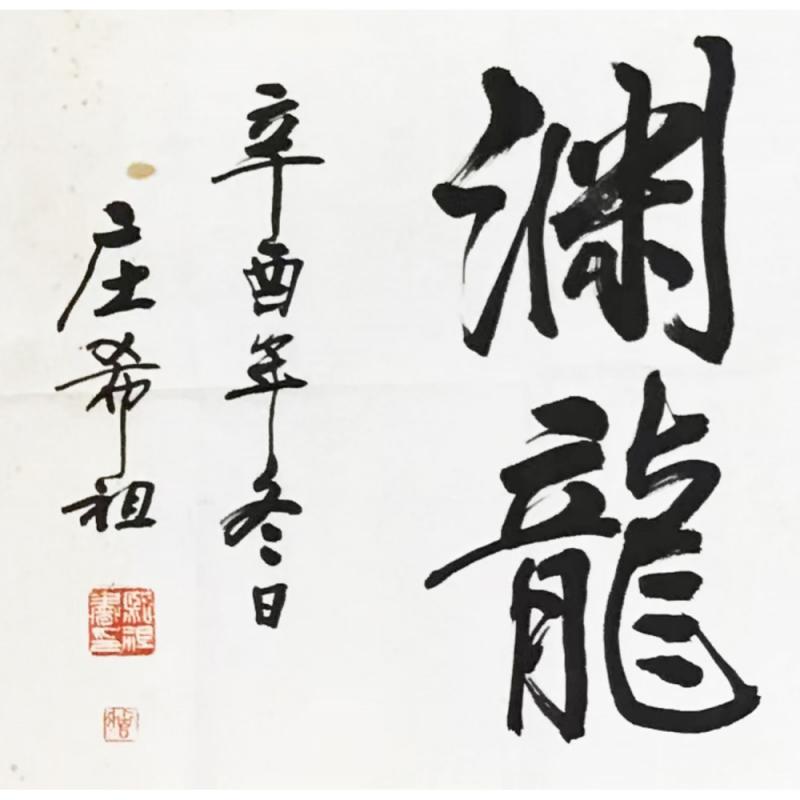 渊龍
辛酉年冬日
庄希祖